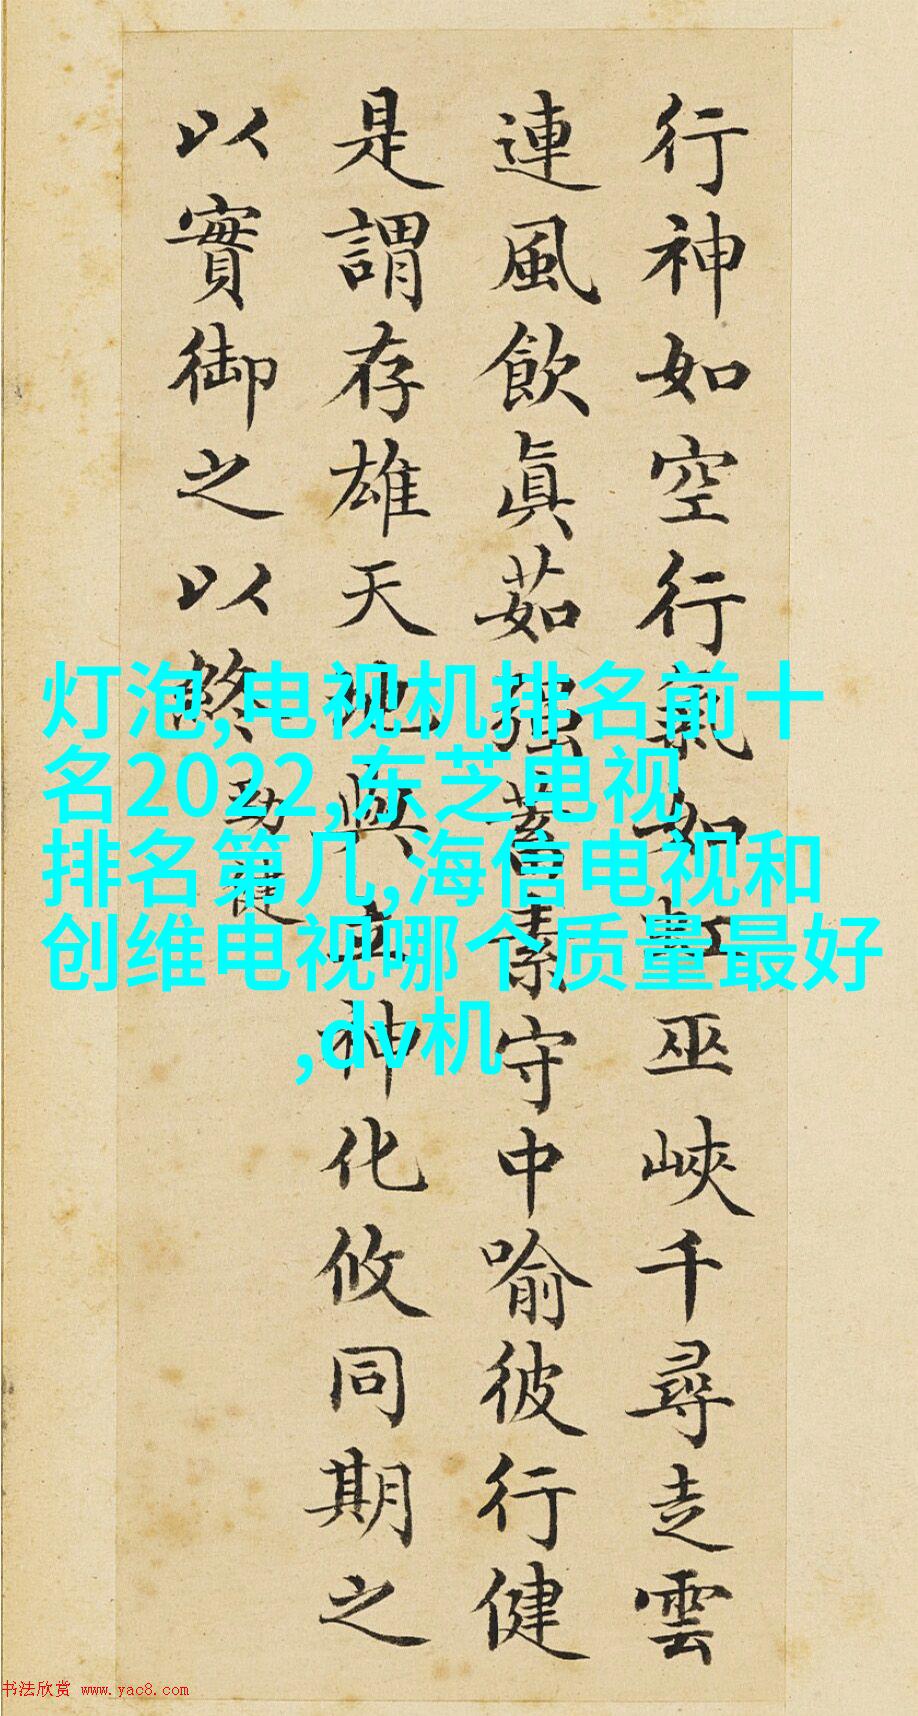 行神如空行氣如虹巫峽千尋走雲
連風飲眞茹强蓄素守中喻彼行健
是謂存雄天地與立神化攸同期之
以實御之以終
勁健
灯泡,电视机排名前十
名2022,东芝电视
排名第几,海信电视和
创维电视哪个质量最好
,dv机
书法欣赏 www.yac8.com